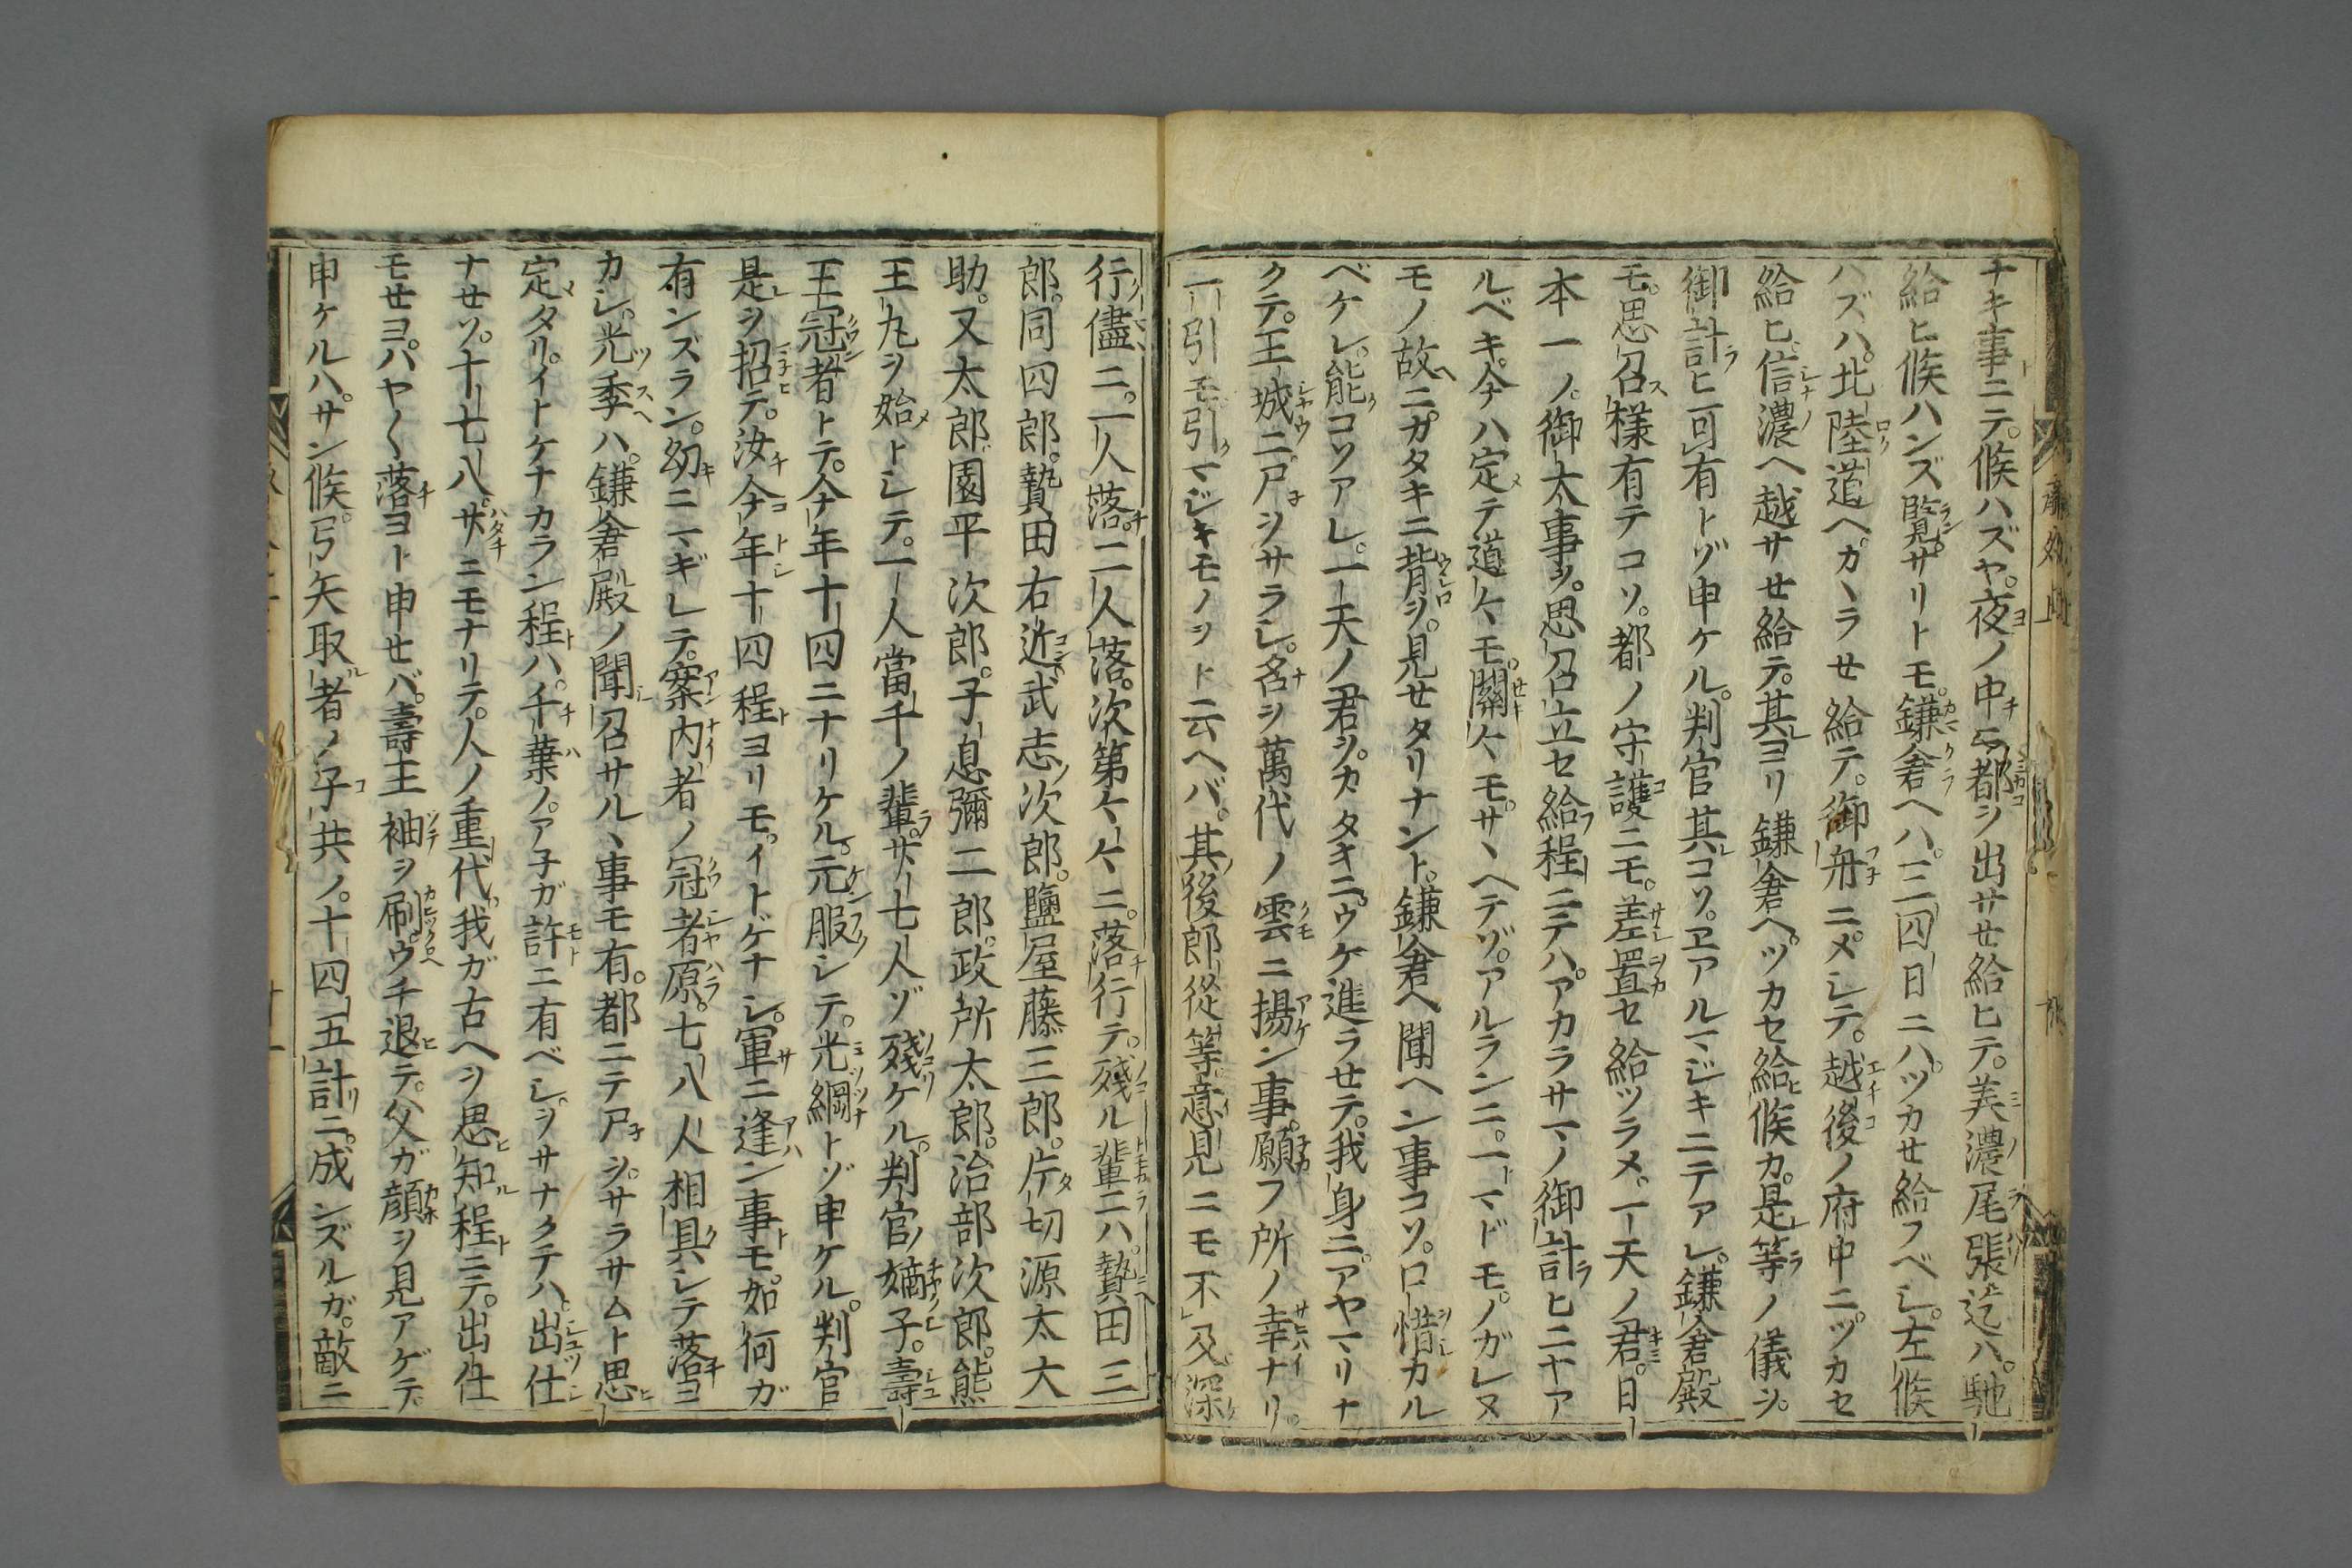 ナキ事ニテ候ハズヤ。夜ノ中ニ都ヲ出サセ給ヒテ。美濃尾張迄ハ。馳
給ヒ候ハンズ覽。サリトモ。鎌倉ヘハ。三四日ニハ。ツカせ給フベシ。左候
ハズハ。北陸道ヘカヽラせ給テ。御舟ニメシテ。越後ノ府中ニ。ツカセ
給ヒ。信濃ヘ越サせ給テ。其ヨリ鎌倉ヘ。ツカセ給候カ。是等ノ儀ヲ。
御計ヒ可有トゾ申ケル。判官其コソ。ヱアルマジキニテアレ。鎌倉殿
モ。思召樣有テコソ。都ノ守護ニモ。差置セ給ツラメ。一天ノ君。日
本一ノ。御大事ヲ。思召立セ給程ニテハ。アカラサマノ御計ヒニヤア
ルベキ。今ハ定テ道々モ。關々モ。サヽヘテゾ。アルランニ。一マドモ。ノガレヌ
モノ故ニ。カタキニ背ヲ。見せタリナント。鎌倉ヘ聞ヘン事コソ。口惜カル
ベケレ。能コソアレ。一天ノ君ヲ。カタキニ。ウケ進ラせテ。我身ニ。アヤマリナ
クテ。王城ニ尸ヲサラシ。名ヲ萬代ノ雲ニ揚ン事。願フ所ノ幸ナリ。
一引モ引マジキモノヲト云ヘバ。其後郎從等。意見ニモ不及。深
行儘ニ。一人落。二人落。次第々々ニ。落行テ。殘ル輩ニハ。贄田三
郎。同四郎。贄田右近。武志次郎。鹽屋藤三郎。片切源太。大
助。又太郎。園平次郎。子息彌二郎。政所太郎。治部次郎。熊
王丸ヲ始トシテ。一人當千ノ輩。廿七人ゾ殘ケル。判官ノ嫡子。壽
王冠者トテ。今年十四ニナリケル。元服シテ。光綱トゾ申ケル。判官
是ヲ招テ。汝今年十四程ヨリモ。イトゲナシ。軍ニ逢ン事モ。如何ガ
有ンズラン。幼ニマギレテ。案内者ノ冠者原。七八人相具シテ落ヨ
カシ。光季ハ。鎌倉殿ノ聞召サルヽ事モ有。都ニテ尸ヲ。サラサムト思
定タリ。イトケナカラン程ハ。千葉ノ。アネガ許ニ有ベシ。ヲサナクテハ。出仕
ナせソ。十七八。廿ニモナリテ。人ノ重代。我ガ古ヘヲ思知程ニテ。出仕
モせヨ。ハヤ〱落ヨト申せバ。壽王袖ヲ刷。ウチ退テ。父ガ顔ヲ見アゲテ。
申ケルハ。サン候。弓矢取者ノ子共ノ。十四五計ニ。成ンズルガ。敵ニ